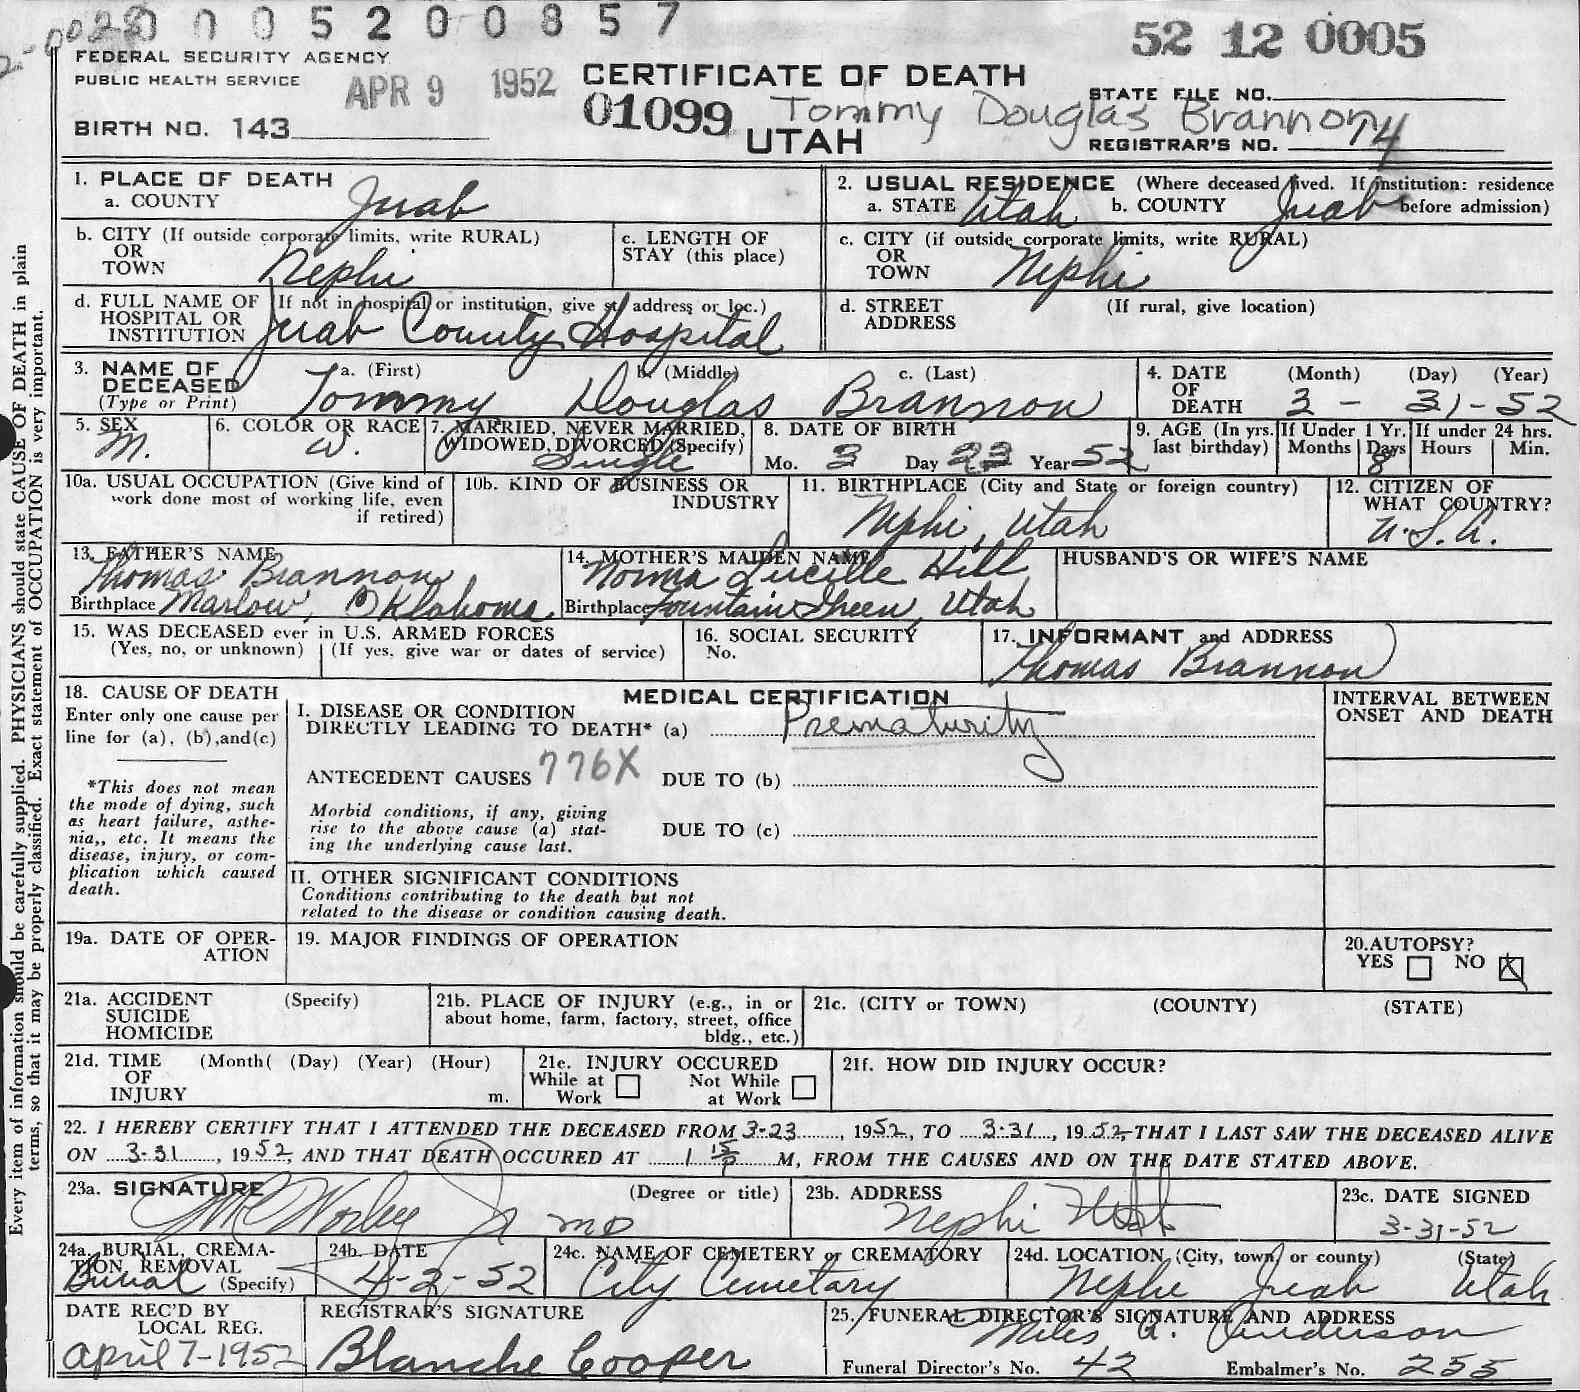 0 0 0 5 2 0 0 8 5 7
52 12 0005
FEDERAL SECURITY AGENCY
PUBLIC HEALTH SERVICE
APR 9 1952
CERTIFICATE OF DEATH
STATE FILE NO.
01099 Tommy Douglas Brannon
BIRTH NO. 143
UTAH
REGISTRAR'S NO. 14
Every item of information should be carefully supplied. PHYSICIANS should state CAUSE OF DEATH in plain
terms, so that it may be properly classified. Exact statement of OCCUPATION is very important.
1. PLACE OF DEATH
a. COUNTY Juab
2. USUAL RESIDENCE (Where deceased lived. If institution: residence
a. STATE Utah b. COUNTY Juab before admission)
b. CITY (If outside corporate limits, write RURAL)
OR
TOWN Nephi
c. LENGTH OF
STAY (this place)
c. CITY (if outside corporate limits, write RURAL)
OR
TOWN Nephi
d. FULL NAME OF (If not in hospital or institution, give st. address or loc.)
HOSPITAL OR
INSTITUTION Juab County Hospital
d. STREET (If rural, give location)
ADDRESS
3. NAME OF a. (First) b. (Middle) c. (Last)
DECEASED
(Type or Print) Tommy Douglas Brannon
4. DATE (Month) (Day) (Year)
OF
DEATH 3 - 31-52
5. SEX
M.
6. COLOR OR RACE
W.
7. MARRIED, NEVER MARRIED,
WIDOWED, DIVORCED (Specify)
Single
8. DATE OF BIRTH
Mo. 3 Day 23 Year 52
9. AGE (In yrs. If Under 1 Yr. If under 24 hrs.
last birthday) Months Days Hours Min.
8
10a. USUAL OCCUPATION (Give kind of
work done most of working life, even
if retired)
10b. KIND OF BUSINESS OR
INDUSTRY
11. BIRTHPLACE (City and State or foreign country)
Nephi, Utah
12. CITIZEN OF
WHAT COUNTRY?
U.S.A.
13. FATHER'S NAME
Thomas Brannon
Birthplace Marlow, Oklahoma
14. MOTHER'S MAIDEN NAME
Norma Lucille Hill
Birthplace Fountain Green, Utah
HUSBAND'S OR WIFE'S NAME
15. WAS DECEASED ever in U.S. ARMED FORCES
(Yes, no, or unknown) (If yes, give war or dates of service)
16. SOCIAL SECURITY
No.
17. INFORMANT and ADDRESS
Thomas Brannon
18. CAUSE OF DEATH
Enter only one cause per
line for (a), (b), and (c)
*This does not mean
the mode of dying, such
as heart failure, asthe-
nia,, etc. It means the
disease, injury, or com-
plication which caused
death.
MEDICAL CERTIFICATION
I. DISEASE OR CONDITION
DIRECTLY LEADING TO DEATH* (a) Prematurity
ANTECEDENT CAUSES 776X DUE TO (b)
Morbid conditions, if any, giving
rise to the above cause (a) stat-
ing the underlying cause last.
DUE TO (c)
INTERVAL BETWEEN
ONSET AND DEATH
II. OTHER SIGNIFICANT CONDITIONS
Conditions contributing to the death but not
related to the disease or condition causing death.
19a. DATE OF OPER-
ATION
19. MAJOR FINDINGS OF OPERATION
20. AUTOPSY?
YES NO X
21a. ACCIDENT (Specify)
SUICIDE
HOMICIDE
21b. PLACE OF INJURY (e.g., in or
about home, farm, factory, street, office
bldg., etc.)
21c. (CITY or TOWN) (COUNTY) (STATE)
21d. TIME (Month( (Day) (Year) (Hour)
OF
INJURY m.
21e. INJURY OCCURED
While at Work Not While at Work
21f. HOW DID INJURY OCCUR?
22. I HEREBY CERTIFY THAT I ATTENDED THE DECEASED FROM 3-23, 1952, TO 3-31, 1952, THAT I LAST SAW THE DECEASED ALIVE
ON 3-31, 1952 AND THAT DEATH OCCURED AT 1 15 P M, FROM THE CAUSES AND ON THE DATE STATED ABOVE.
23a. SIGNATURE (Degree or title)
Worley Jr MD
23b. ADDRESS
Nephi Utah
23c. DATE SIGNED
3-31-52
24a. BURIAL, CREMA-
TION, REMOVAL
Burial (Specify)
24b. DATE
4-2-52
24c. NAME OF CEMETERY or CREMATORY
City Cemetary
24d. LOCATION (City, town, or county) (State)
Nephi Juab Utah
DATE REC'D BY
LOCAL REG.
April 7-1952
REGISTRAR'S SIGNATURE
Blanche Cooper
25. FUNERAL DIRECTOR'S SIGNATURE AND ADDRESS
Miles A. Anderson
Funeral Director's No. 42 Embalmer's No. 255